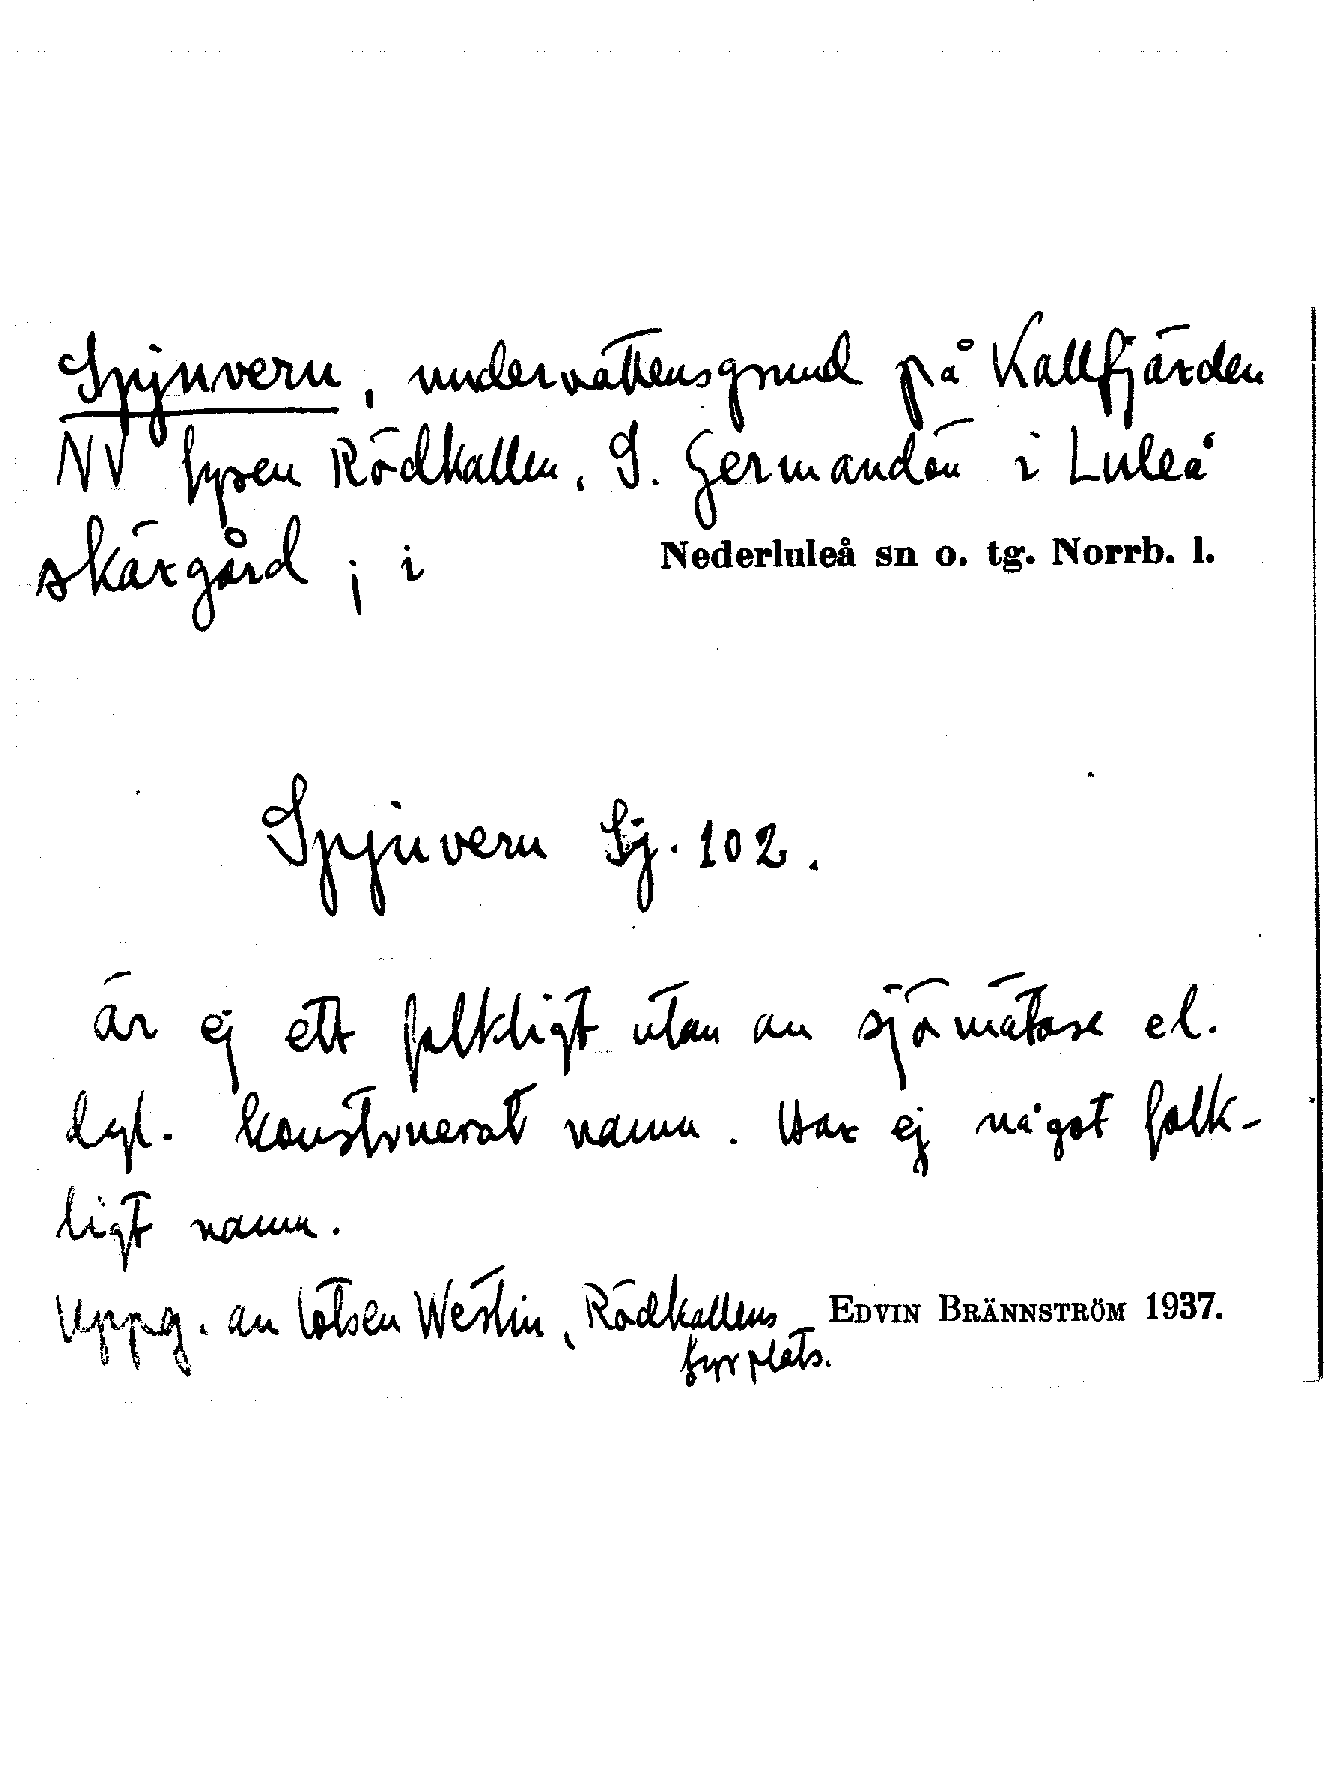 Spjuvern, undervattensgrund på Kallfjärden
NV fyren Rödkallen, S. Germandön i Luleå
skärgård; i Nederluleå sn o. tg. Norrb. l.
Spjuvern Sj. 102.
är ej ett folkligt utan av sjömätare el.
dyl. konstruerat namn. Har ej något folk-
ligt namn.
Uppg. av lotsen Westin, Rödkallens EDVIN BRÄNNSTRÖM 1937.
fyrplats.